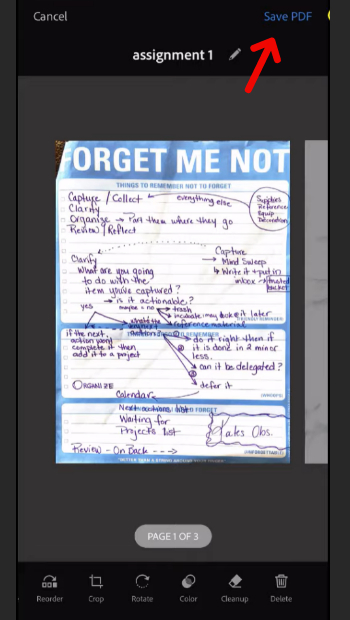 Cancel
Save PDF
assignment 1
FORGET ME NOT
THINGS TO REMEMBER NOT TO FORGET
Capture / Collect
everything else
Clarity
Organize → Put them where they go
Review / Reflect
Supplies
Reference
Equip
Decoration
Clarify
What are you going
to do with the
item you've captured?
→ is it actionable?
yes
maybe
no
trash
incubate, may look @ it later
reference material
Capture
→ Mind Sweep
→ Write it + put in
inbox → trusted
bucket
if the next
action point
complete it then
add it to a project
what's the
next
action?
do it right then if
it is done in 2 min or
less.
can it be delegated?
defer it
ORGANIZE
Calendar
Next actions list
Waiting for
Projects list
Review - On Back - - ->
PAGE 1 OF 3
Reorder
Crop
Rotate
Color
Cleanup
Delete